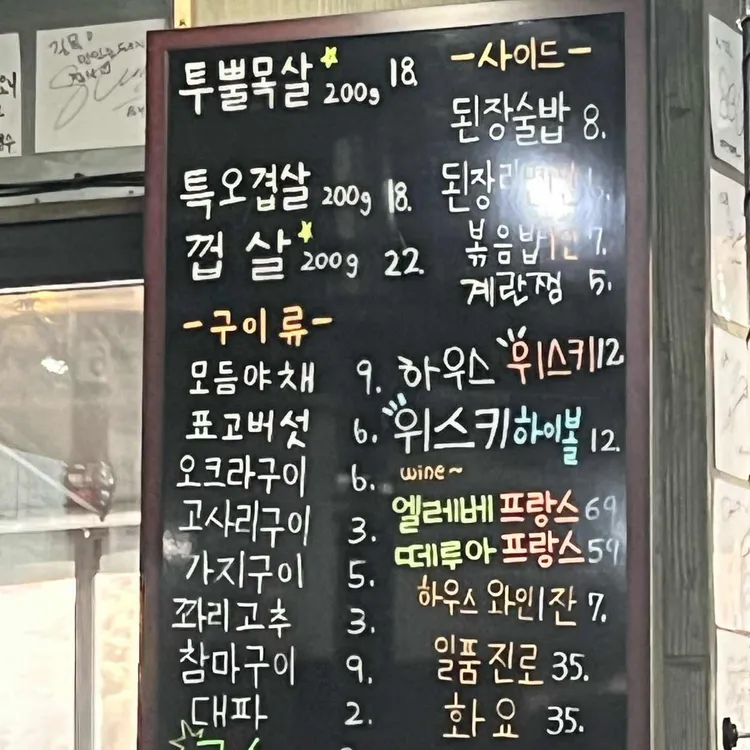 투뿔목살 200g 18.
특오겹살 200g 18.
껍 살 200g 22.
-구이류-
모듬야채 9.
표고버섯 6.
오크라구이 6.
고사리구이 3.
가지구이 5.
꽈리고추 3.
참마구이 9.
대파 2.
-사이드-
된장술밥 8.
된장
볶음밥1인 7.
계란찜 5.
하우스 위스키 12
위스키하이볼 12.
wine~
엘레베 프랑스 69
떼루아 프랑스 59
하우스 와인1잔 7.
일품진로 35.
화요 35.